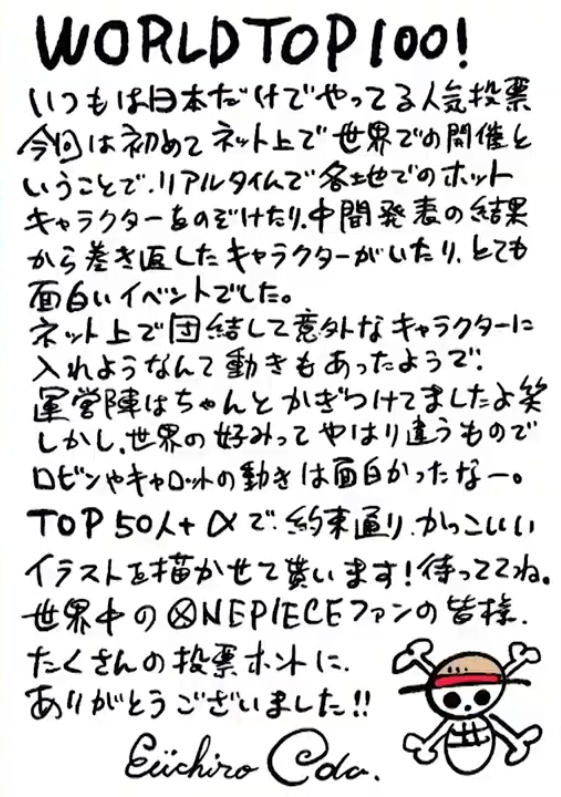 WORLD TOP 100!
いつもは日本だけでやってる人気投票
今回は初めてネット上で世界での開催と
いうことで、リアルタイムで各土地でのホット
キャラクターをのぞけたり、中間発表の結果
から巻き返したキャラクターがいたり、とても
面白いイベントでした。
ネット上で団結して意外なキャラクターに
入れようなんて動きもあったようで、
運営陣はちゃんとかぎつけてましたよ笑
しかし、世界の好みってやはり違うもので
ロビンやキャロットの動きは面白かったなー。
TOP 50人+αで、約束通り、かっこいい
イラストを描かせて貰います!待っててね。
世界中のONE PIECEファンの皆様、
たくさんの投票ホントに、
ありがとうございました!!
Eiichiro Oda.